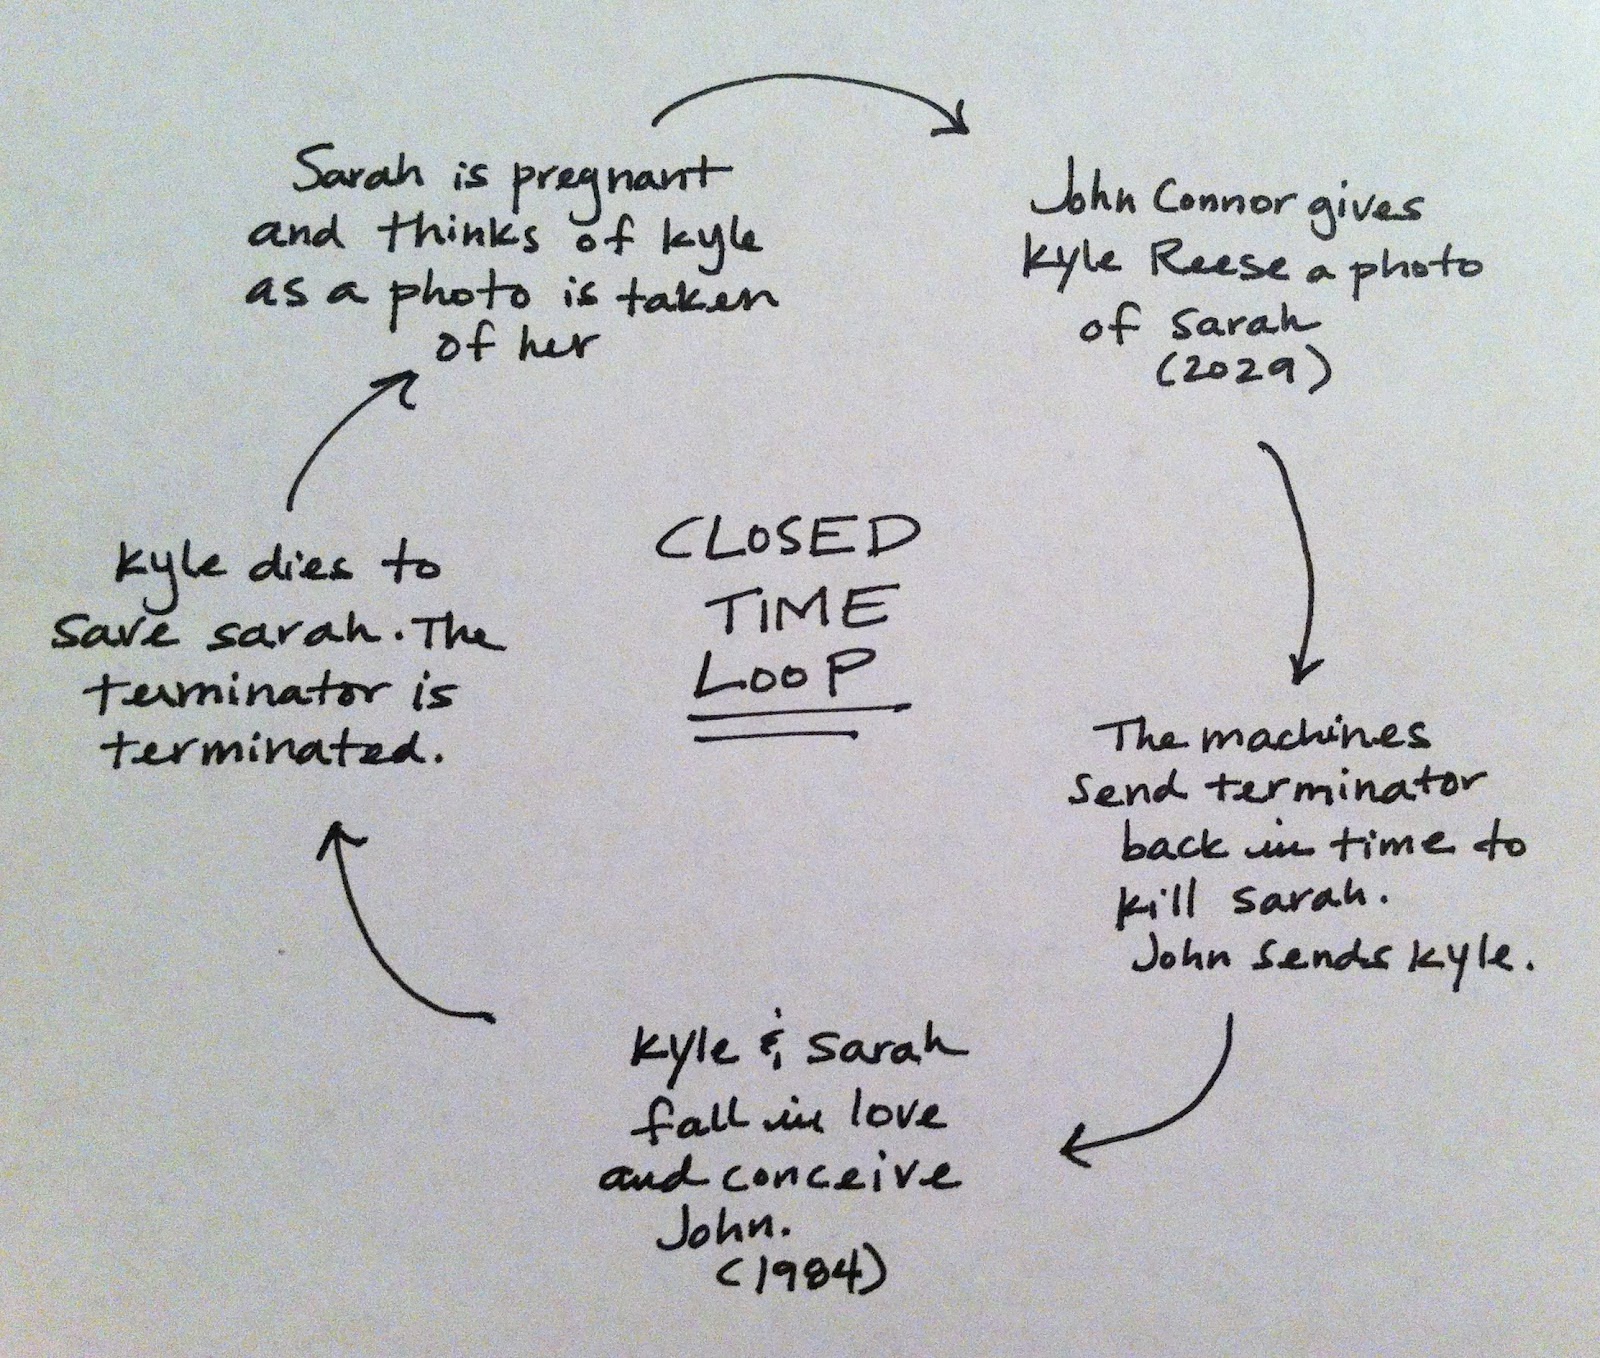 Sarah is pregnant
and thinks of Kyle
as a photo is taken
of her
John Connor gives
Kyle Reese a photo
of Sarah
(2029)
The machines
send terminator
back in time to
kill Sarah.
John sends Kyle.
Kyle & Sarah
fall in love
and conceive
John.
(1984)
Kyle dies to
save Sarah. The
terminator is
terminated.
CLOSED
TIME
LOOP